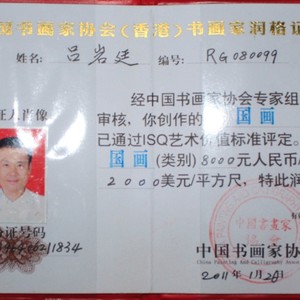 国书画家协会(香港)书画家润格证
姓名: 吕岩廷 编号: RG080099
证人肖像
经中国书画家协会专家组
审核,你创作的 国画
已通过ISQ艺术价值标准评定。
国画 (类别) 8000元人民币/
2000美元/平方尺,特此润
证号码
中国书画家协
China Painting and Calligraphy
2011年1月2日